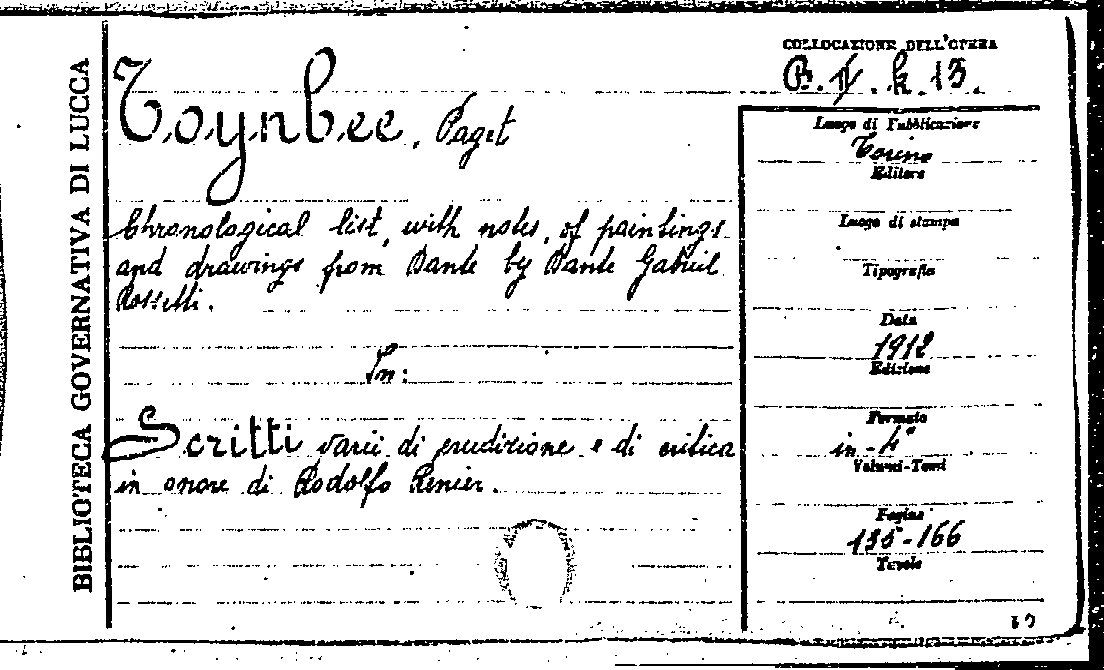 BIBLIOTECA GOVERNATIVA DI LUCCA
Toynbee, Paget
Chronological list, with notes, of paintings
and drawings from Dante by Dante Gabriel
Rossetti.
In:
Scritti varii di erudizione e di critica
in onore di Rodolfo Renier.
COLLOCAZIONE DELL'OPERA
B. II. k. 13.
Luogo di Pubblicazione
Torino
Editore
Luogo di stampa
Tipografia
Data
1912
Edizione
Formato
in-4°
Volumi-Tomi
Pagine
135-166
Tavole